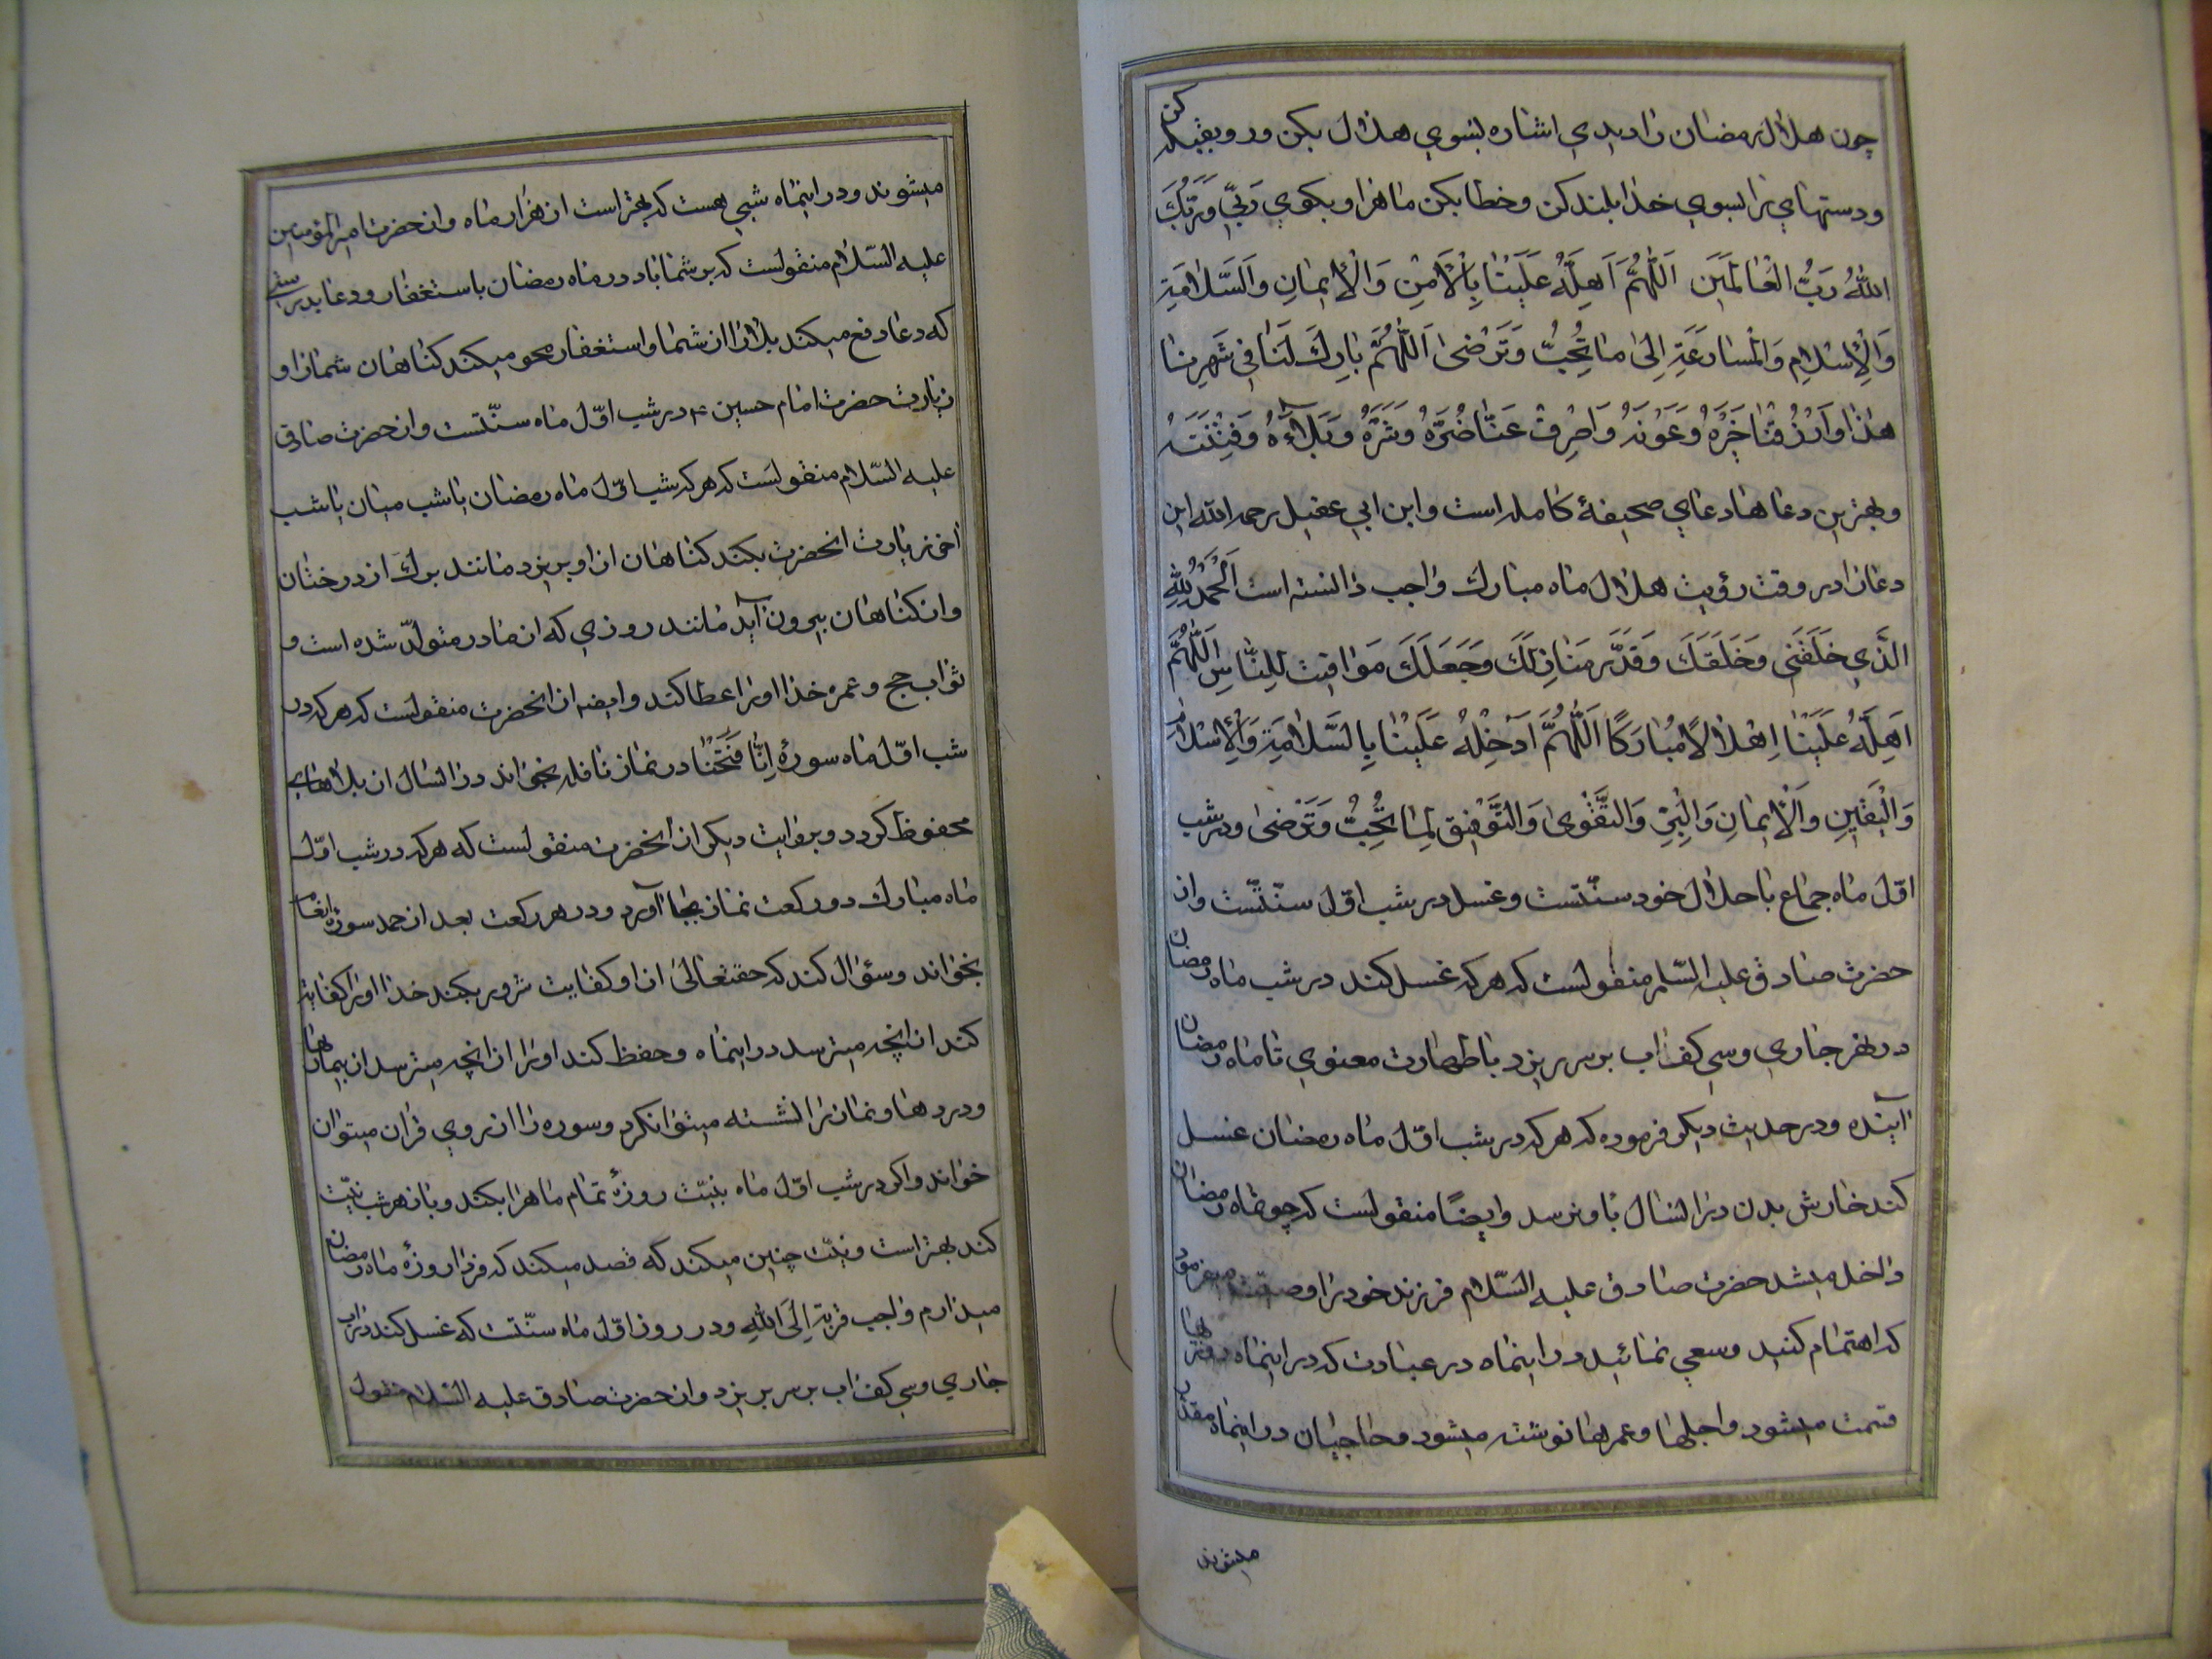 چون هلال رمضان را دیدی اشاره بسوی هلال مکن و رو بقبله کن
و دستهای را بسوی خدا بلند کن و خطاب کن ماه را و بگوی رَبّی وَ رَبُّكَ
اللهُ رَبُّ الْعَالَمَینَ اَللّٰهُمَّ اَهِلَّهُ عَلَیْنَا بِالْاَمْنِ وَ الْاِیمَانِ وَ السَّلَامَةِ
وَ الْاِسْلَامِ وَ الْمُسَارَعَةِ اِلیٰ مَا تُحِبُّ وَ تَرْضیٰ اَللّٰهُمَّ بَارِكَ لَنَا فِی شَهْرِنَا
هٰذَا وَ ارْزُقْنَا خَیْرَهُ وَ عَوْنَهُ وَ اصْرِفْ عَنَّا ضُرَّهُ وَ شَرَّهُ وَ بَلَاءَهُ وَ فِتْنَتَهُ
و بهترین دعاها دعای صحیفهٔ کامله است و ابن ابی عقیل رحمه الله این
دعا را در وقت رؤیت هلال ماه مبارك واجب دانسته است اَلْحَمْدُ لِلّٰهِ
الَّذِی خَلَقَنِی وَ خَلَقَكَ وَ قَدَّرَ مَنَازِلَكَ وَ جَعَلَكَ مَوَاقِیتَ لِلنَّاسِ اَللّٰهُمَّ
اَهِلَّهُ عَلَیْنَا اِهْلَالًا مُبَارَكًا اَللّٰهُمَّ اَدْخِلْهُ عَلَیْنَا بِالسَّلَامَةِ وَ الْاِسْلَامِ
وَ الْیَقِینِ وَ الْاِیمَانِ وَ الْبِرِّ وَ التَّقْویٰ وَ التَّوْفِیقِ لِمَا تُحِبُّ وَ تَرْضیٰ و در شب
اوّل ماه جماع با حلال خود سنّتست و غسل در شب اوّل سنّتست و از
حضرت صادق علیه السّلم منقولست که هر که غسل کند در شب ماه رمضان
در نهر جاری و سی کف اب بر سر ریزد با طهارت معنوی تا ماه رمضان
آینده و در حدیث دیکر فرموده که هر که در شب اوّل ماه رمضان غسل
کند خارش بدن در انسال باو نرسد و ایضًا منقولست که چو ماه رمضان
داخل میشد حضرت صادق علیه السّلام فرزند خود را وصیّت میفرمود
که اهتمام کنید و سعی نمائید در اینماه در عبادت که در اینماه روزیها
قسمت میشود و اجلها و عمرها نوشته میشود و حاجیان در اینماه مقدّر
میشوند
میشوند و در اینماه شبی هست که بهتر است از هزار ماه و از حضرت امیر المؤمنین
علیه السّلام منقولست که بر شما باد در ماه رمضان باستغفار و دعا بدرستی
که دعا دفع میکند بلا را از شما و استغفار محو میکند کناهان شما را و
زیارت حضرت امام حسین ع در شب اوّل ماه سنّتست و از حضرت صادق
علیه السّلام منقولست که هر که شب اوّل ماه رمضان یا شب میان یا شب
اخر زیارت انحضرت بکند کناهان از او بریزد مانند برك از درختان
و از کناهان بیرون آید مانند روزی که از مادر متولّد شده است و
ثواب حج و عمره خدا او را عطا کند و ایضه از انحضرت منقولست که هر که در
شب اوّل ماه سورهٔ اِنَّا فَتَحْنَا در نماز نافله بخواند در انسال از بلاهای
محفوظ کردد و بروایت دیکر از انحضرت منقولست که هر که در شب اوّل
ماه مبارك دو رکعت نماز بجا آورد و در هر رکعت بعد از حمد سورهٔ انعام
بخواند و سؤال کند که حقتعالیٰ از او کفایت شرور بکند خدا او را کفایة
کند از انچه میترسد در اینماه و حفظ کند او را از انچه میترسد از بیماریها
و دردها و نماز را نشسته میتوان کرد و سوره را از روی قران میتوان
خواند و اکر در شب اوّل ماه بنیّت روزهٔ تمام ماه را بکند و باز هر شب نیّت
کند بهتر است و نیّت چنین میکند که قصد میکند که فردا روزهٔ ماه رمضان
میدارم واجب قربة اِلَی اللهِ و در روز اوّل ماه سنّتست که غسل کند در اب
جاری و سی کف اب بر سر بریزد و از حضرت صادق علیه السّلام منقول